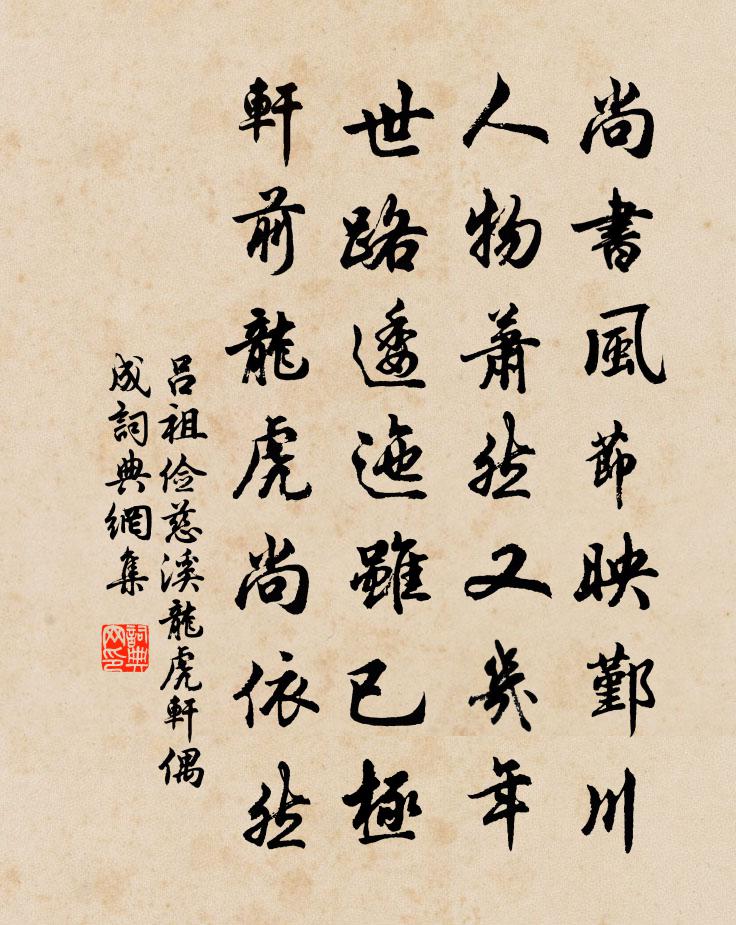 尚書風節映鄞川
人物蕭然又幾年
世路逶迤雖已極
軒前龍虎尚依然
吕祖俭慈溪龍虎軒偶
成詞典網集
詞典网印